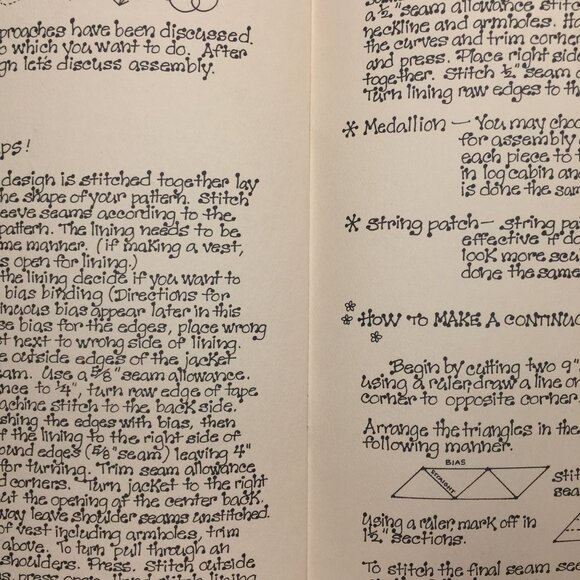 proaches have been discussed.
o which you want to do. After
gn let's discuss assembly.
ps!
design is stitched together lay
he shape of your pattern. Stitch
leeve seams according to the
pattern. The lining needs to be
me manner. (if making a vest,
s open for lining.)
the lining decide if you want to
bias binding (Directions for
tinuous bias appear later in this
se bias for the edges, place wrong
t next to wrong side of lining.
e outside edges of the jacket
eam. Use a 5/8" seam allowance.
nce to 1/4", turn raw edge of tape
achine stitch to the back side.
shing the edges with bias, then
f the lining to the right side of
ound edges (5/8" seam) leaving 4"
for turning. Trim seam allowance
d corners. Turn jacket to the right
ut the opening at the center back.
way leave shoulder seams unstitched
of vest including armholes, trim
above. To turn pull through an
shoulders. Press. Stitch outside
a 1/2" seam allowance stitc
neckline and armholes. Ho
the curves and trim corner
and press. Place right side
together. Stitch 1/2" seam a
Turn lining raw edges to th
* Medallion — You may choo
for assembly o
each piece to t
in log cabin and
is done the sam
* String patch — String pa
effective if do
look more scul
done the same
HOW TO MAKE A CONTINUO
Begin by cutting two 9"
using a ruler draw a line o
corner to opposite corner.
Arrange the triangles in the
following manner.
BIAS
STRAIGHT
Stit
Using a ruler mark off in
1 1/2" sections.
To stitch the final seam se